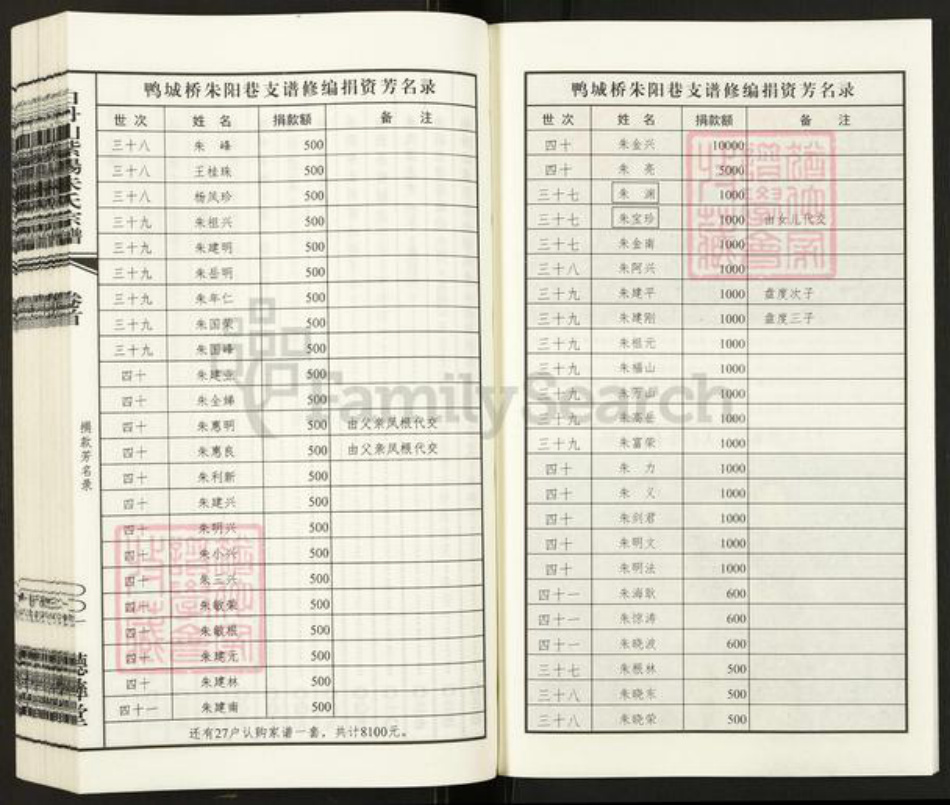 鸭城桥朱阳巷支谱修编捐资芳名录
世次 姓名 捐款额 备注
四十 朱金兴 10000
四十 朱亮 5000
三十七 朱渊 1000
三十七 朱宝珍 1000 由女儿代交
三十七 朱金南 1000
三十八 朱阿兴 1000
三十九 朱建平 1000 盘度次子
三十九 朱建刚 1000 盘度三子
三十九 朱祖元 1000
三十九 朱福山 1000
三十九 朱万山 1000
三十九 朱高岳 1000
三十九 朱富荣 1000
四十 朱力 1000
四十 朱义 1000
四十 朱剑君 1000
四十 朱明文 1000
四十 朱明法 1000
四十一 朱海耿 600
四十一 朱惊涛 600
四十一 朱晓波 600
三十七 朱根林 500
三十八 朱晓东 500
三十八 朱晓荣 500
鸭城桥朱阳巷支谱修编捐资芳名录
世次 姓名 捐款额 备注
三十八 朱峰 500
三十八 王桂珠 500
三十八 杨凤珍 500
三十九 朱祖兴 500
三十九 朱建明 500
三十九 朱岳明 500
三十九 朱年仁 500
三十九 朱国荣 500
三十九 朱国峰 500
四十 朱建业 500
四十 朱全娣 500
四十 朱惠明 500 由父亲凤根代交
四十 朱惠良 500 由父亲凤根代交
四十 朱利新 500
四十 朱建兴 500
四十 朱明兴 500
四十 朱小兴 500
四十 朱三兴 500
四十 朱敏荣 500
四十 朱敏根 500
四十 朱建元 500
四十 朱建林 500
四十一 朱建南 500
还有27户认购家谱一套，共计8100元。
山紫阳朱氏宗谱
卷首
捐款芳名录
FamilySearch